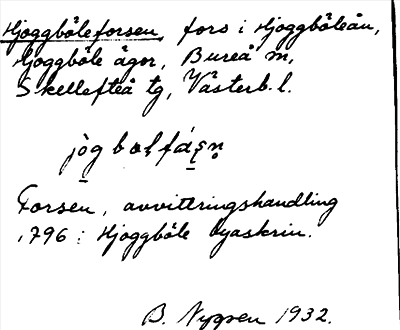 Hjoggböleforsen, fors i Hjoggböleån,
Hjoggböle ägor, Bureå sn,
Skellefteå tg, Västerb. l.
Forsen, avvittringshandling
1796 : Hjoggböle byaskrin.
B. Nygren 1932.